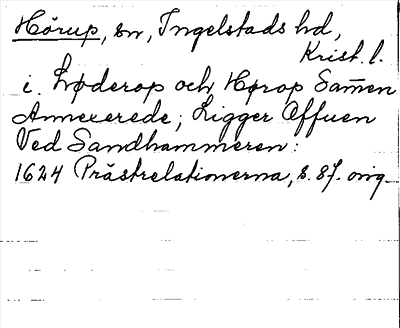 Hörup, sn, Ingelstads hd,
Krist. l.
i. Løderop och Hørop Samen
Annexerede; Ligger Offuen
Ved Sandhammeren:
1624 Prästrelationerna, s. 87. orig.